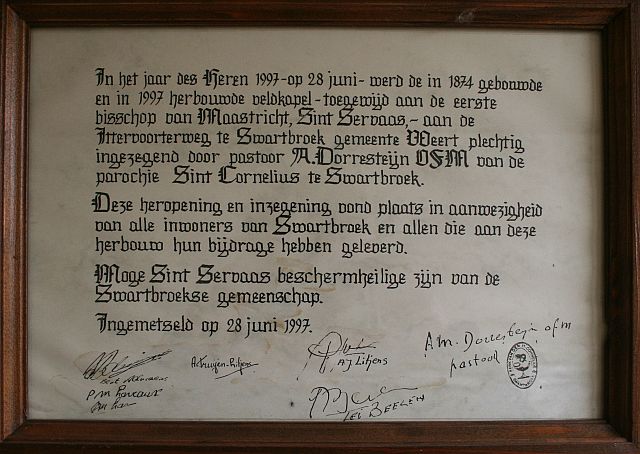 In het jaar des Heren 1997-op 28 juni- werd de in 1874 gebouwde
en in 1997 herbouwde veldkapel-toegewijd aan de eerste
bisschop van Maastricht, Sint Servaas,- aan de
Ittervoorterweg te Swartbroek gemeente Weert plechtig
ingezegend door pastoor A.Dorresteijn OFM van de
parochie Sint Cornelius te Swartbroek.
Deze heropening en inzegening vond plaats in aanwezigheid
van alle inwoners van Swartbroek en allen die aan deze
herbouw hun bijdrage hebben geleverd.
Moge Sint Servaas beschermheilige zijn van de
Swartbroekse gemeenschap.
Ingemetseld op 28 juni 1997.
A.M. Dorresteijn ofm
pastoor
AJ Litjens
Lei BEELEN